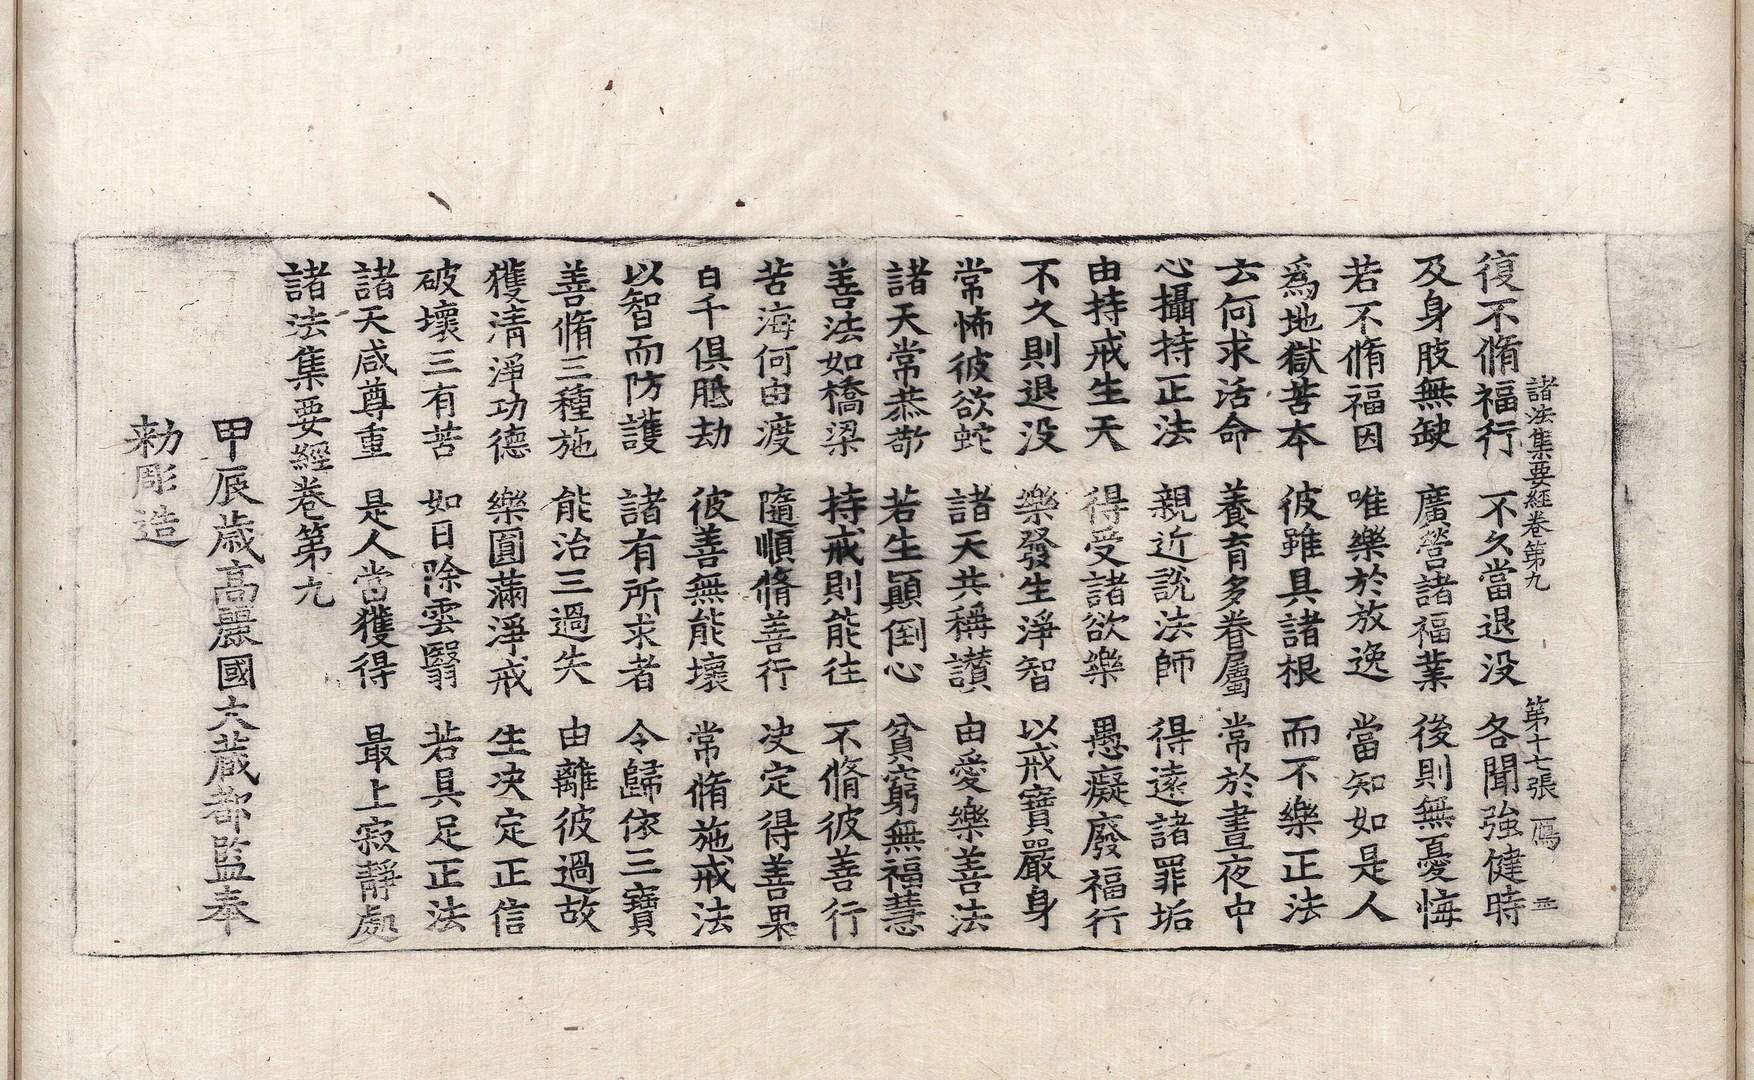 復不脩福行 不久當退没 各聞強健時
諸法集要經卷第九 第十七張 鴈
及身肢無缺 廣營諸福業 後則無憂悔
若不脩福因 唯樂於放逸 當知如是人
爲地獄苦本 彼雖具諸根 而不樂正法
云何求活命 養育多眷屬 常於晝夜中
心攝持正法 親近説法師 得遠諸罪垢
由持戒生天 得受諸欲樂 愚癡廢福行
不久則退没 樂發生淨智 以戒寶嚴身
常怖彼欲蛇 諸天共稱讃 由愛樂善法
諸天常恭敬 若生顚倒心 貧窮無福慧
善法如橋梁 持戒則能往 不脩彼善行
苦海何由渡 隨順脩善行 决定得善果
百千俱胝劫 彼善無能壞 常脩施戒法
以智而防護 諸有所求者 令歸依三寶
善脩三種施 能治三過失 由離彼過故
獲清淨功德 樂圓滿淨戒 生决定正信
破壞三有苦 如日除雲翳 若具足正法
諸天咸尊重 是人當獲得 最上寂靜處
諸法集要經卷第九
甲辰歳高麗國大藏都監奉
勑彫造